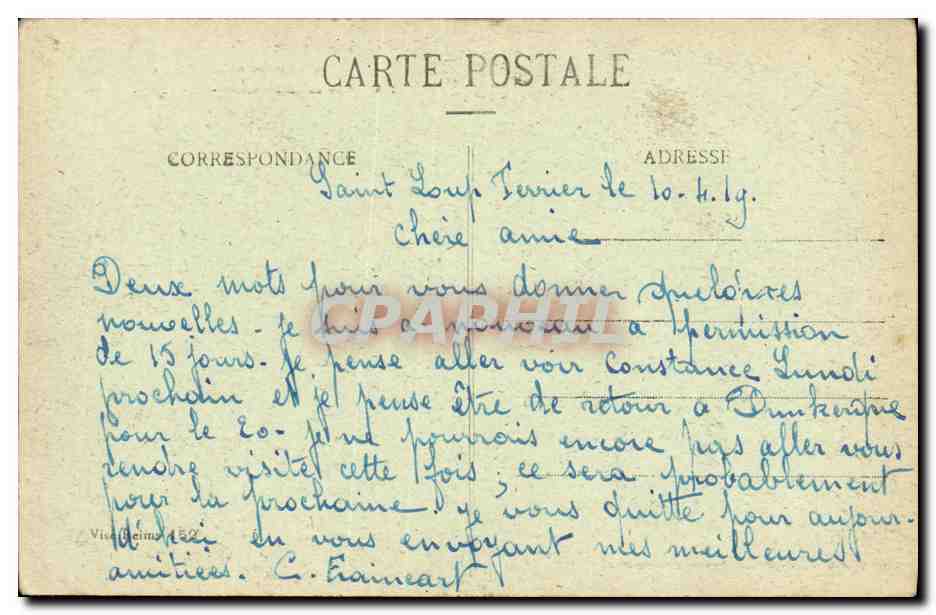 CARTE POSTALE
CORRESPONDANCE
ADRESSE
Saint Loup Terrier le 10.4.19.
chère amie
Deux mots pour vous donner quelques
nouvelles - je suis a nouveau a permission
de 15 jours - Je pense aller voir Constance Lundi
prochain et je pense être de retour a Dunkerque
pour le 20 - je ne pourrais encore pas aller vous
rendre visite cette fois ; ce sera probablement
pour la prochaine. je vous quitte pour aujour-
d'hui en vous envoyant mes meilleures
amitiées. C.
Visé Reims 152
CPARHIL